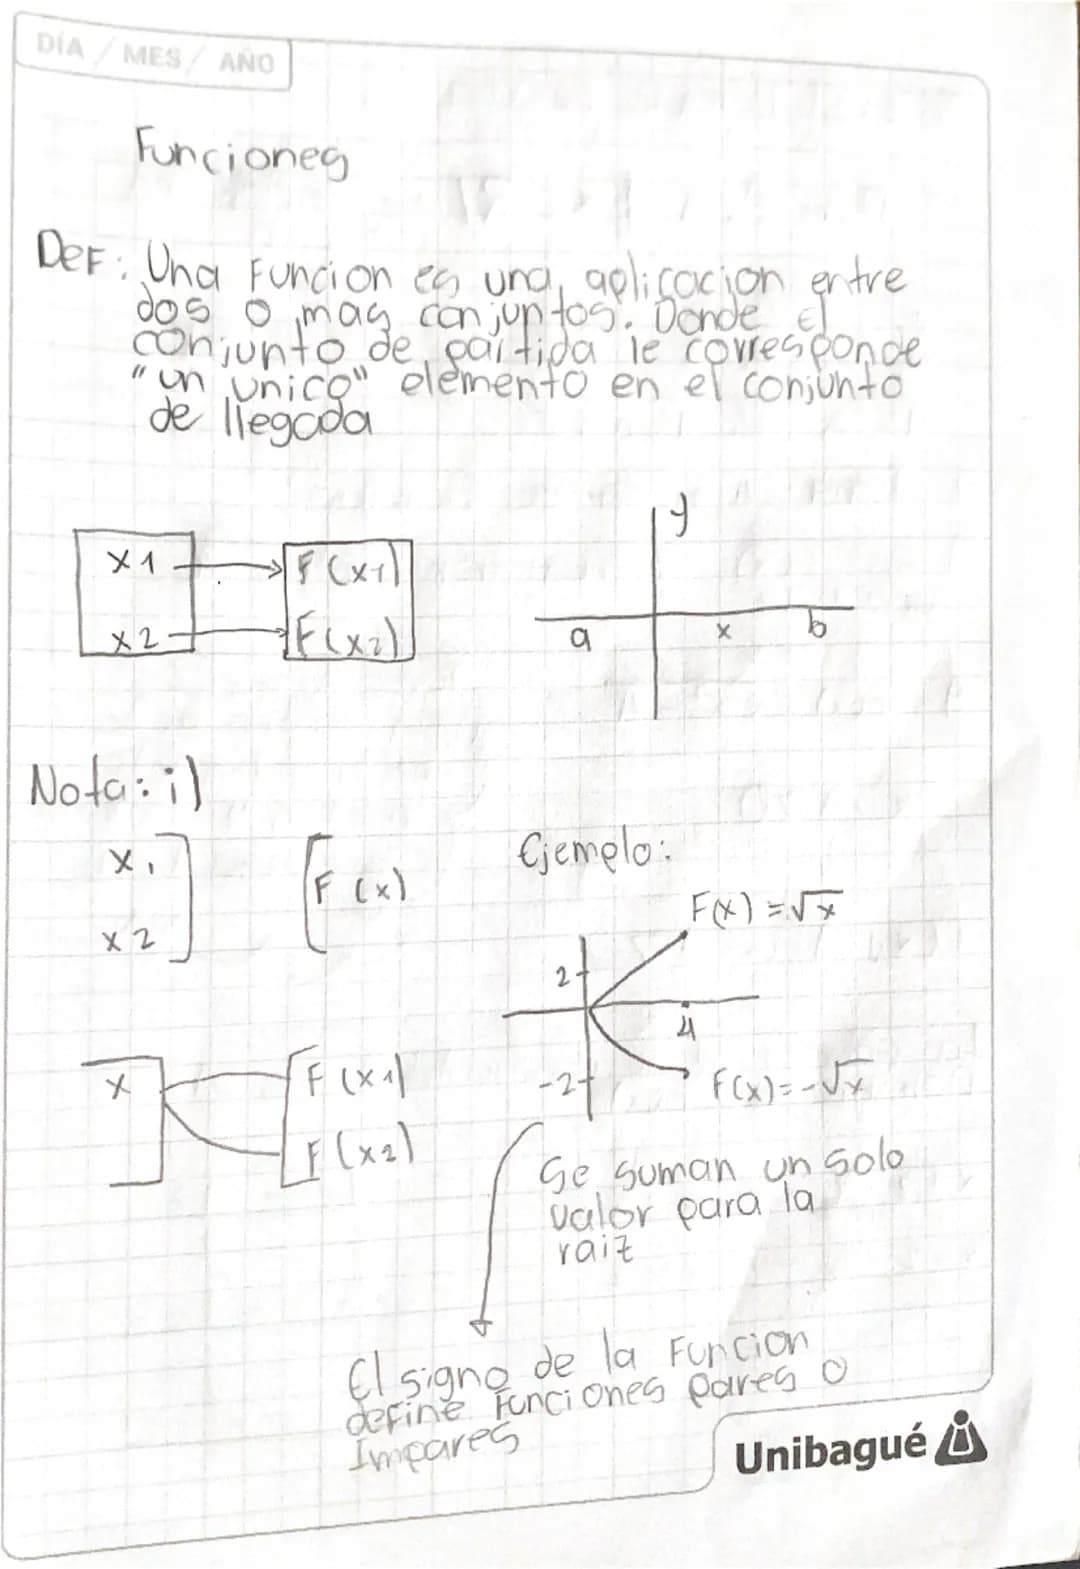 DÍA / MES / AÑO
Funciones
Def: Una Funcion es una aplicacion entre
dos o mas conjuntos. Donde el
conjunto de partida le corresponde
"un unico" elemento en el conjunto
de llegada
x1 F(x1)
x2 F(x2)
y
a x b
Nota: i)
x1 F(x)
x2
Ejemplo:
F(x) = √x
2
4
-2
F(x) = -√x
x F(x1)
F(x2)
Se suman un solo
valor para la
raiz
El signo de la Funcion
define Funciones pares o
Impares
Unibagué